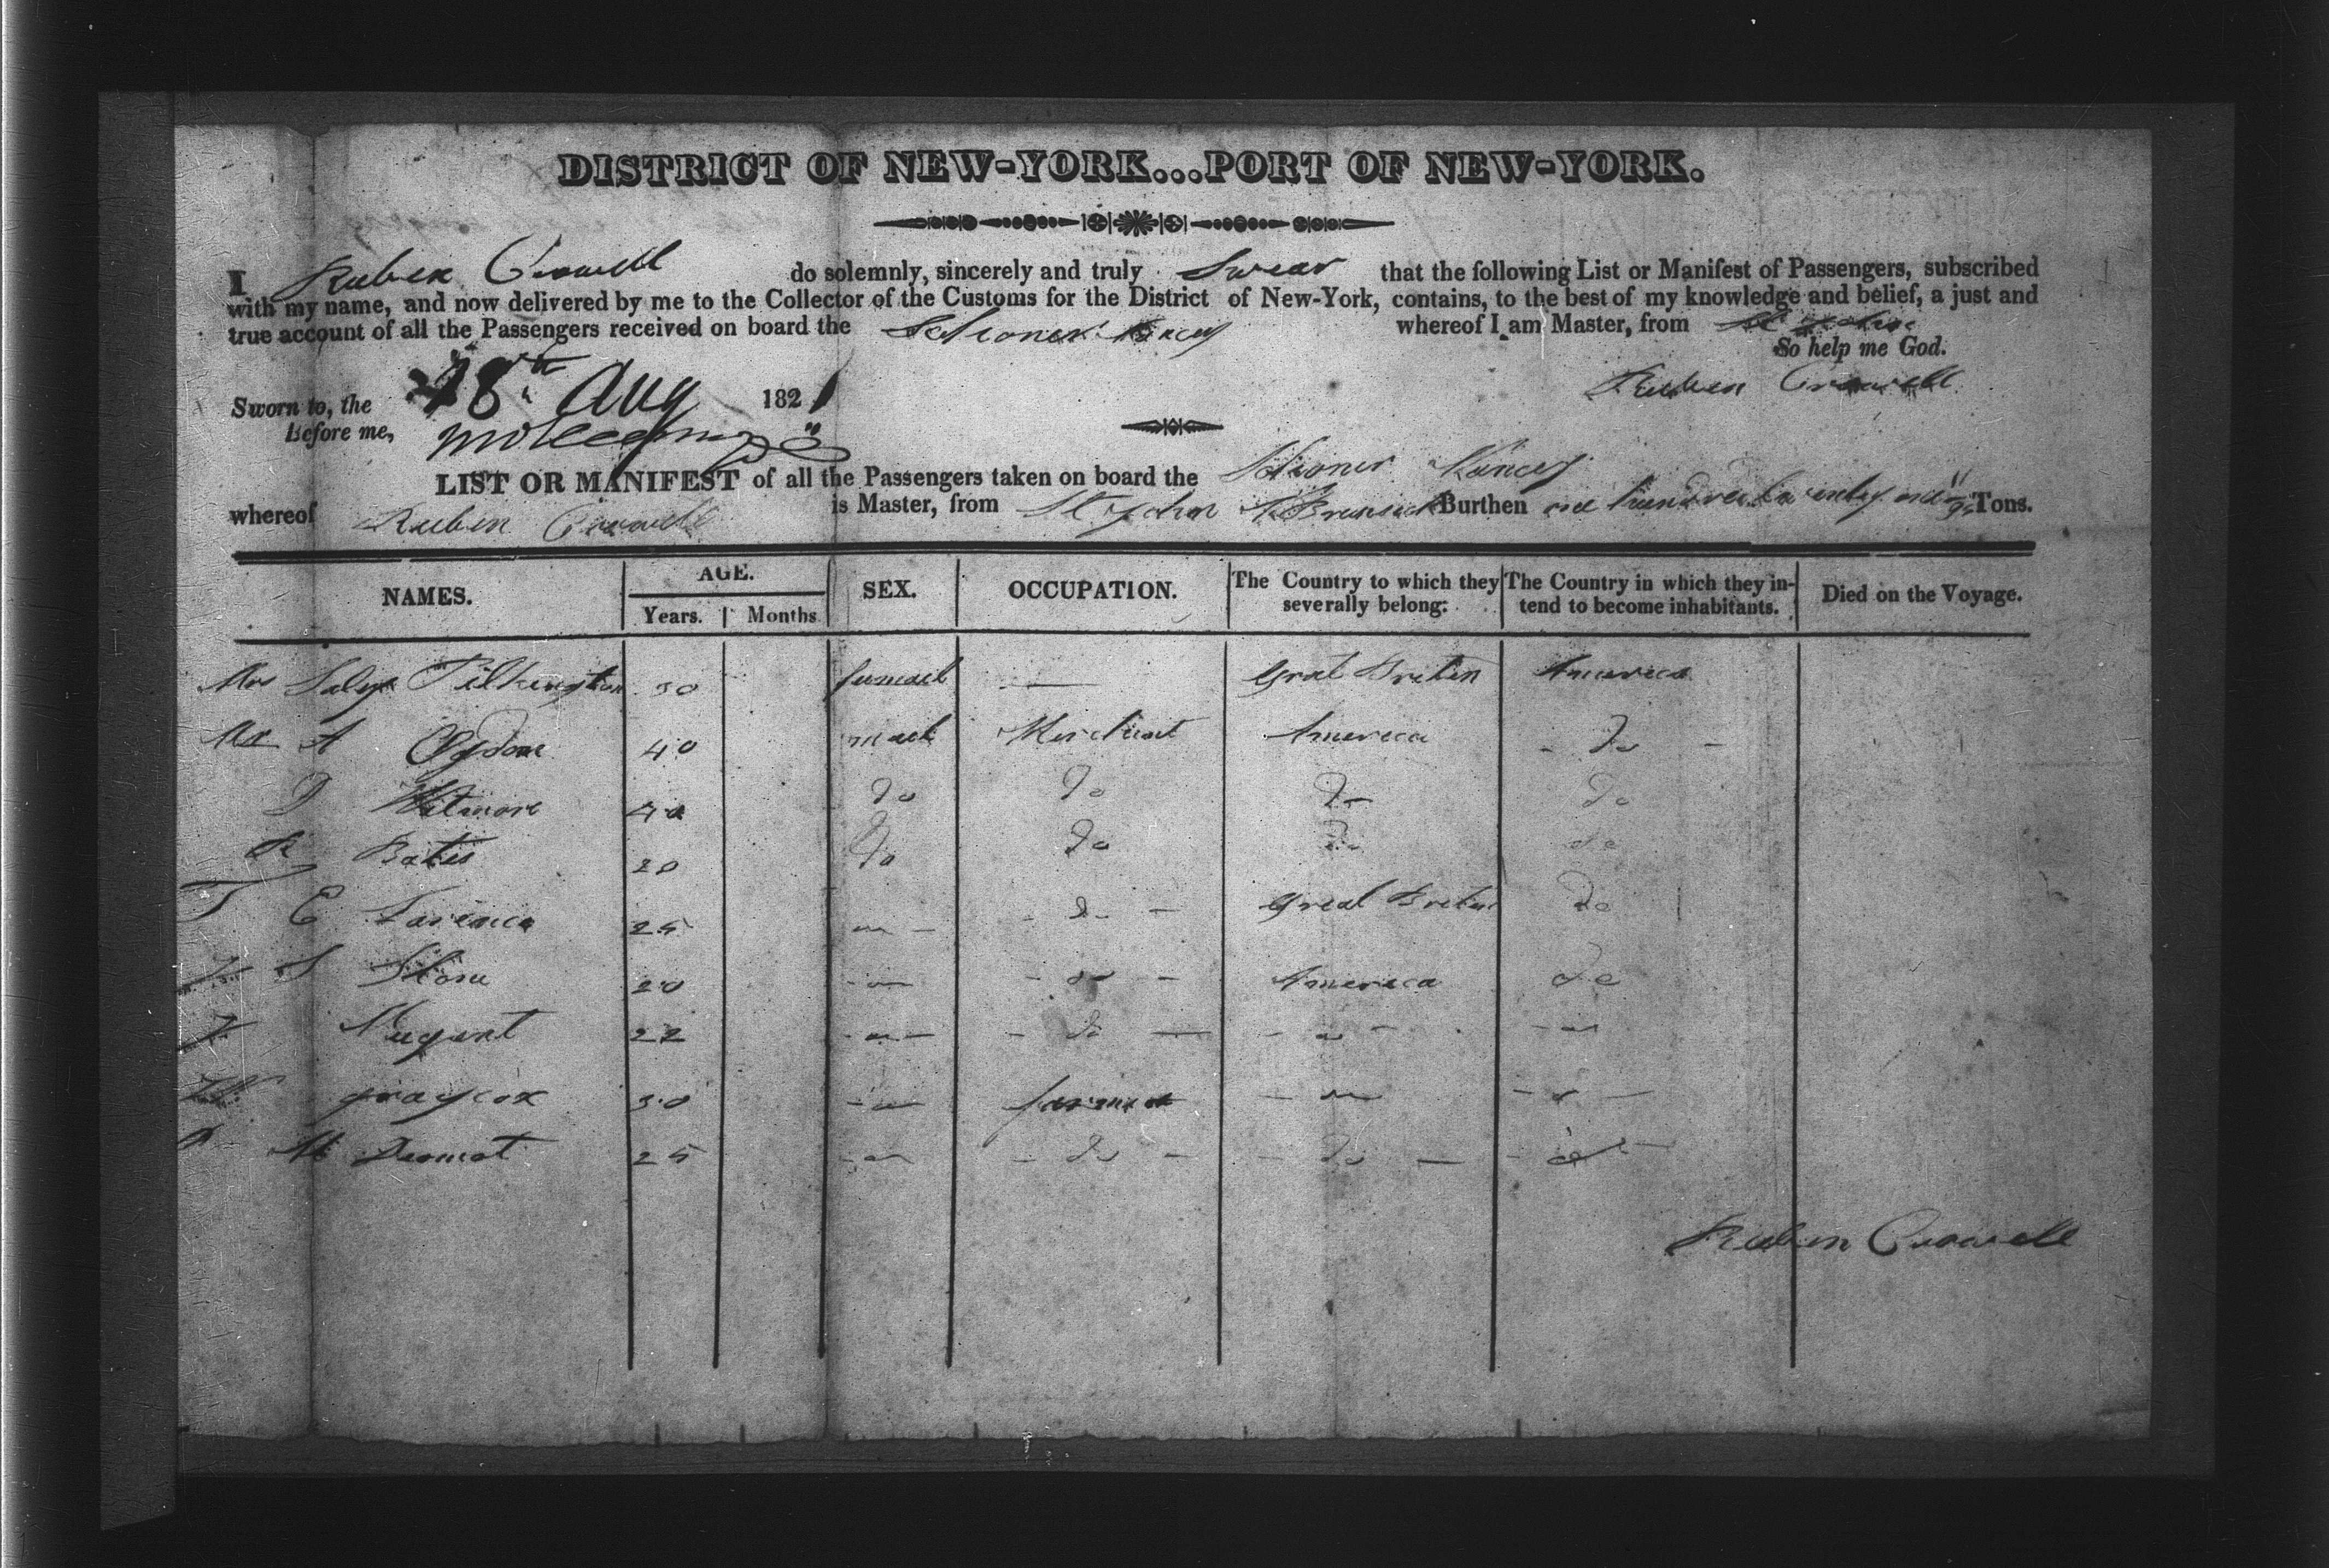 DISTRICT OF NEW-YORK...PORT OF NEW-YORK.
I Ruben Crowell do solemnly, sincerely and truly Swear that the following List or Manifest of Passengers, subscribed
with my name, and now delivered by me to the Collector of the Customs for the District of New-York, contains, to the best of my knowledge and belief, a just and
true account of all the Passengers received on board the whereof I am Master, from St John
So help me God.
Sworn to, the 28th Aug 1821 Reuben Crowell
Before me,
LIST OR MANIFEST of all the Passengers taken on board the Schoner
whereof Reuben Crowell is Master, from St John Burthen one hundred twenty one Tons.
NAMES. AGE. SEX. OCCUPATION. The Country to which they severally belong: The Country in which they intend to become inhabitants. Died on the Voyage.
Years. Months
Mrs Pilkington 30 femael Grat Briten America
Mr A Ogdone 40 mael Merchant America Do
D Wetmore 40 Do Do Do Do
R Bates 20 Do Do Do do
E 25 Do Great Briten Do
S Stone 20 do America do
Nugent 22 Do
graycox 30 farmer
Mc Dermot 25 Do Do
Reuben Crowell